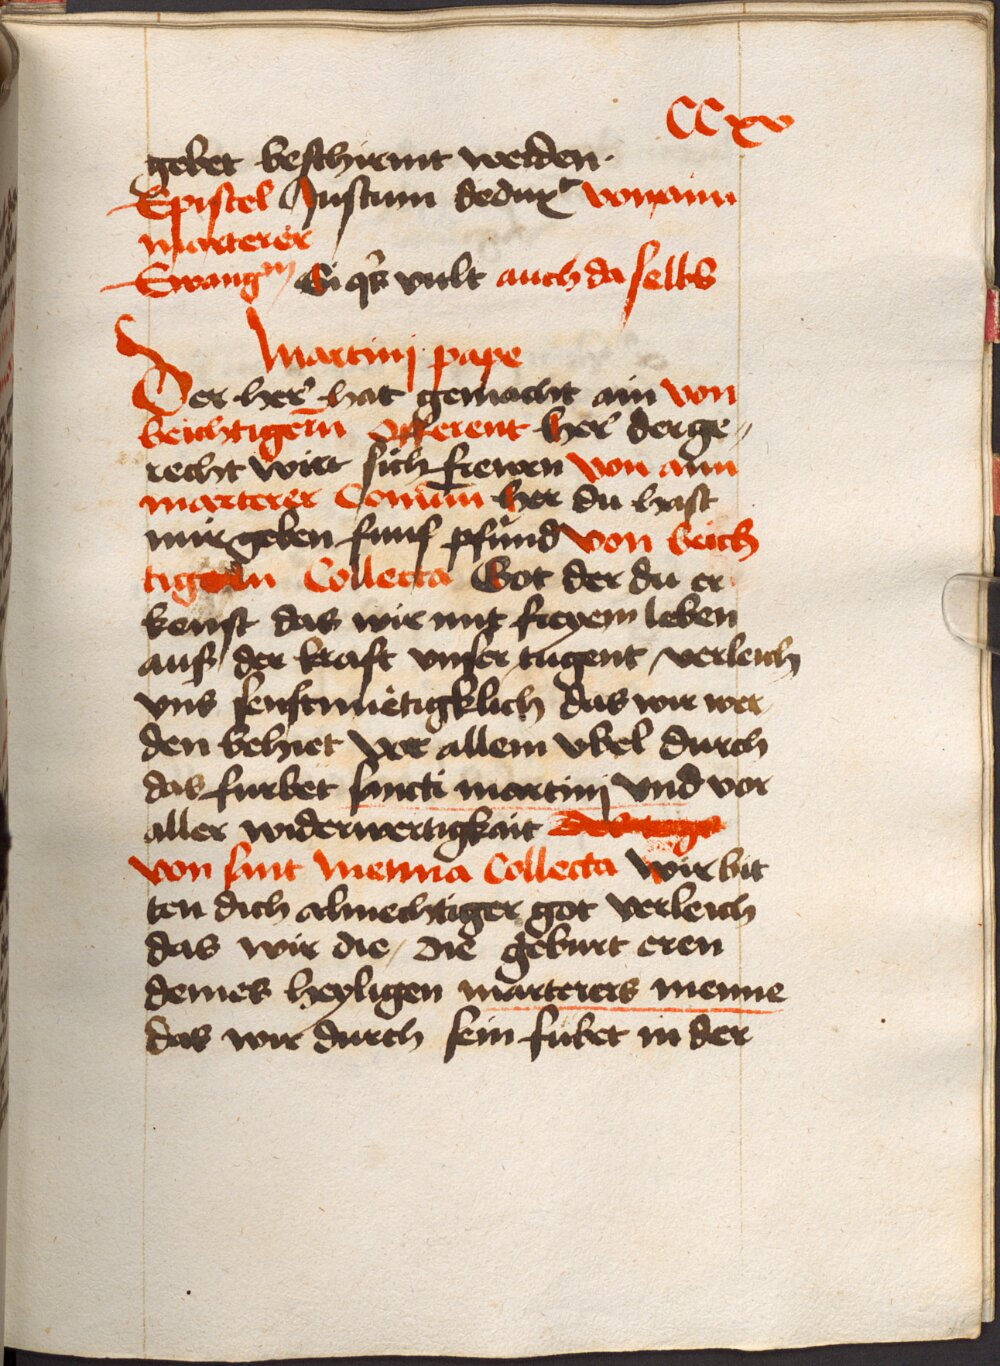 CCxv
gebet beschirmt werden.
Epistel Justum dedux von aim
marterer
Ewangm Si qs vult auch da selbs
Martinj pape
Der her hat gemacht ain von
beichtigern Offerent her der ge
recht wirt sich frewen von aim
marterer Comun her du hast
mir geben funf pfund von beich
tigern Collecta Got der du er
kenst das wir mit freyem leben
auß der kraft vnser tugent verleich
vns senftmuetigklich das wir wer
den behuet vor allem vbel durch
das furbet sancti martinj vnd vor
aller widerwertigkait
von sant Menna Collecta Wir bit
ten dich almechtiger got verleich
das wir die, die geburt eren
deines heyligen marterers menne
das wir durch sein fubet in der